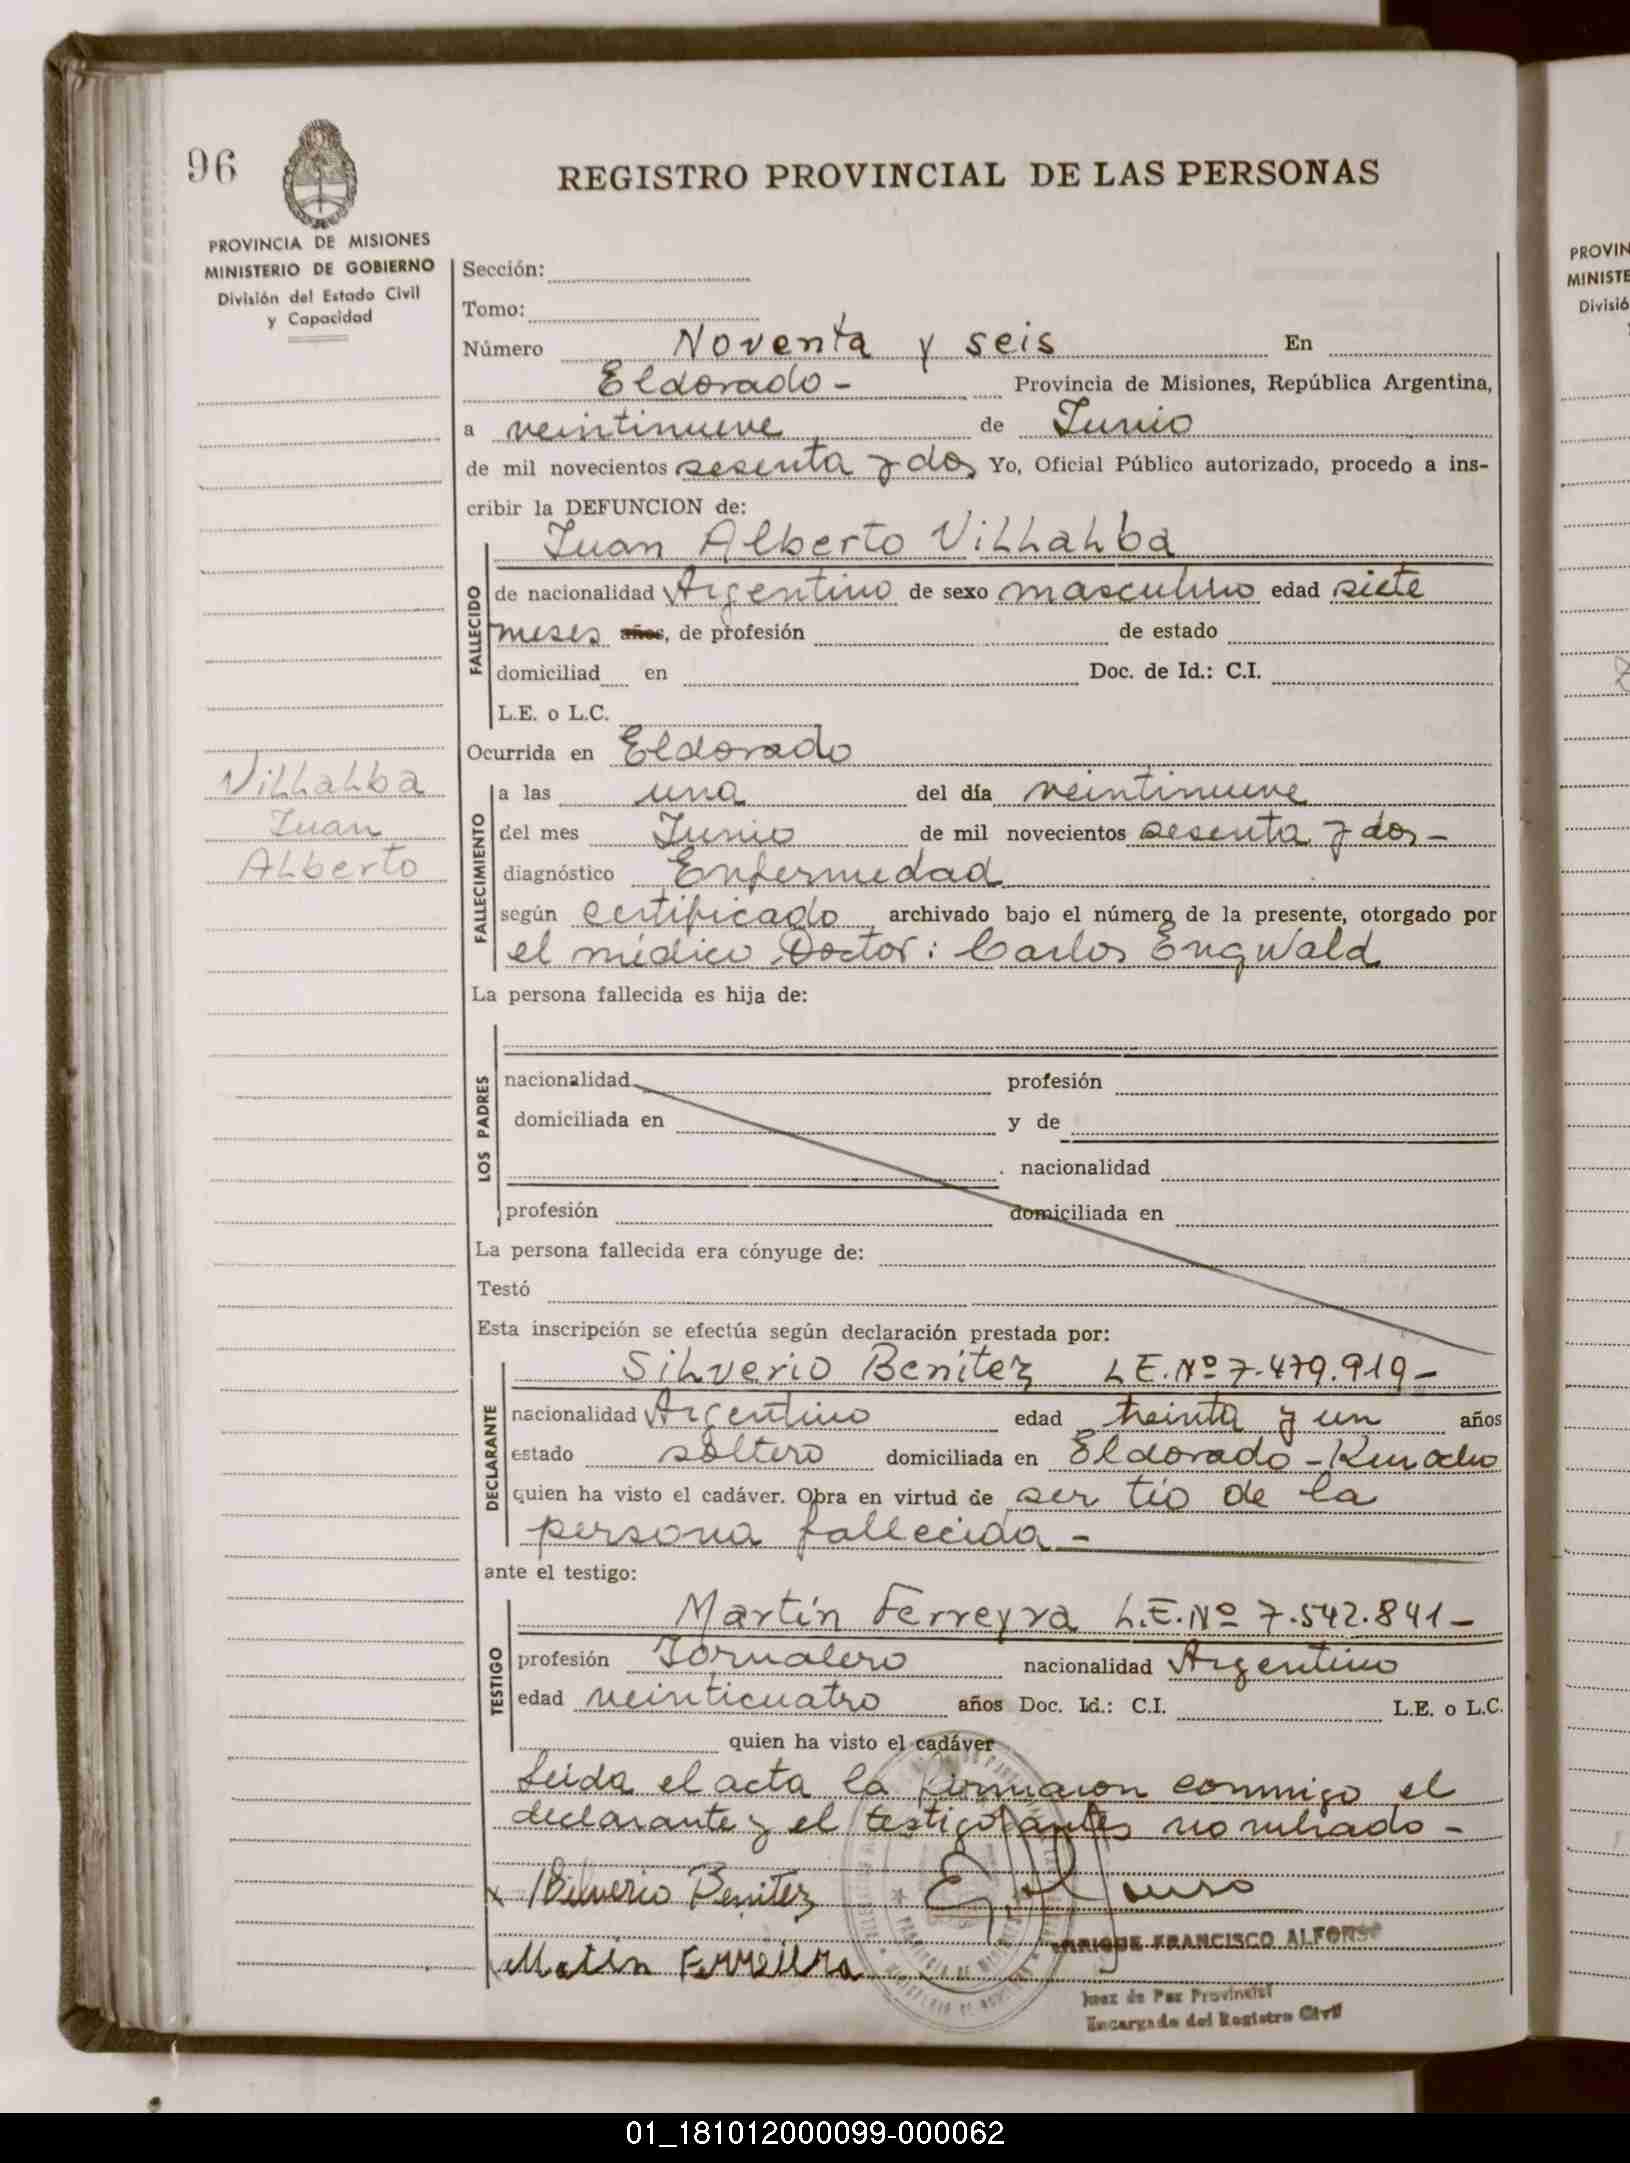 96
REGISTRO PROVINCIAL DE LAS PERSONAS
PROVINCIA DE MISIONES
MINISTERIO DE GOBIERNO
División del Estado Civil
y Capacidad
Sección:
Tomo:
Número Noventa y seis En
Eldorado - Provincia de Misiones, República Argentina,
a veintinueve de Junio
de mil novecientos sesenta y dos Yo, Oficial Público autorizado, procedo a ins-
cribir la DEFUNCION de:
Juan Alberto Villalba
FALLECIDO
de nacionalidad Argentino de sexo masculino edad siete
meses años, de profesión de estado
domiciliad en Doc. de Id.: C.I.
L.E. o L.C.
Ocurrida en Eldorado
Villalba
Juan
Alberto
FALLECIMIENTO
a las una del día veintinueve
del mes Junio de mil novecientos sesenta y dos -
diagnóstico Enfermedad
según certificado archivado bajo el número de la presente, otorgado por
el médico Doctor: Carlos Engwald
La persona fallecida es hija de:
LOS PADRES
nacionalidad profesión
domiciliada en y de
. nacionalidad
profesión domiciliada en
La persona fallecida era cónyuge de:
Testó
Esta inscripción se efectúa según declaración prestada por:
DECLARANTE
Silverio Benitez L.E.Nº 7.479.919 -
nacionalidad Argentino edad treinta y un años
estado soltero domiciliada en Eldorado -
quien ha visto el cadáver. Obra en virtud de ser tío de la
persona fallecida -
ante el testigo:
TESTIGO
Martín Ferreyra L.E.Nº 7.542.841 -
profesión Jornalero nacionalidad Argentino
edad veinticuatro años Doc. Id.: C.I. L.E. o L.C.
quien ha visto el cadáver
Leida el acta la firmaron conmigo el
declarante y el testigo antes nombrado -
x Silverio Benitez
Matin Ferreiira
ENRIQUE FRANCISCO ALFONSO
Juez de Paz Provincial
Encargado del Registro Civil
PROVIN
MINISTE
Divisió
01_181012000099-000062